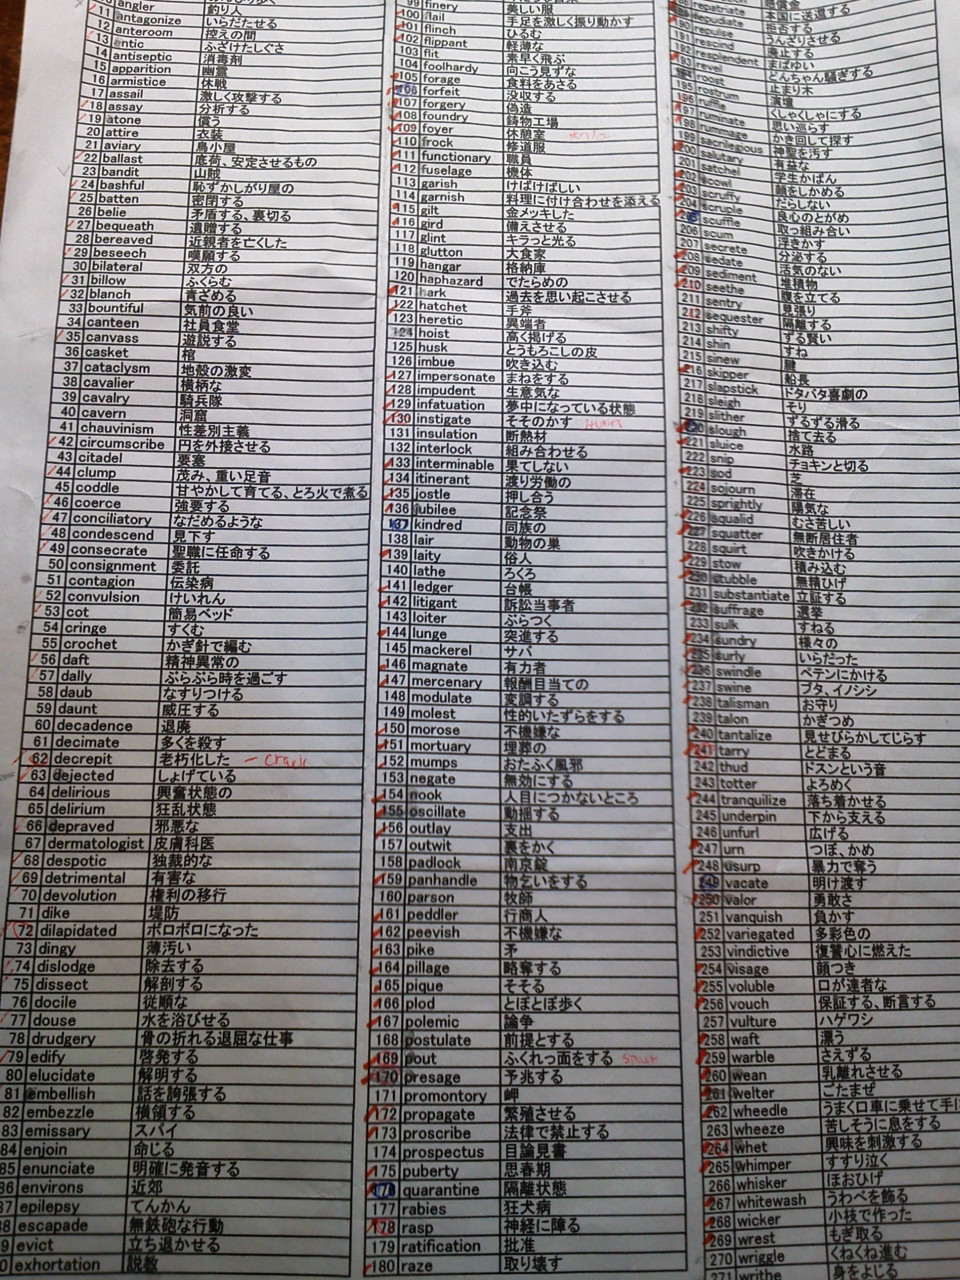 angler 釣り人
11 antagonize いらだたせる
12 anteroom 控えの間
13 antic ふざけたしぐさ
14 antiseptic 消毒剤
15 apparition 幽霊
16 armistice 休戦
17 assail 激しく攻撃する
18 assay 分析する
19 atone 償う
20 attire 衣装
21 aviary 鳥小屋
22 ballast 底荷、安定させるもの
23 bandit 山賊
24 bashful 恥ずかしがり屋の
25 batten 密閉する
26 belie 矛盾する、裏切る
27 bequeath 遺贈する
28 bereaved 近親者を亡くした
29 beseech 嘆願する
30 bilateral 双方の
31 billow ふくらむ
32 blanch 青ざめる
33 bountiful 気前の良い
34 canteen 社員食堂
35 canvass 遊説する
36 casket 棺
37 cataclysm 地殻の激変
38 cavalier 横柄な
39 cavalry 騎兵隊
40 cavern 洞窟
41 chauvinism 性差別主義
42 circumscribe 円を外接させる
43 citadel 要塞
44 clump 茂み、重い足音
45 coddle 甘やかして育てる、とろ火で煮る
46 coerce 強要する
47 conciliatory なだめるような
48 condescend 見下す
49 consecrate 聖職に任命する
50 consignment 委託
51 contagion 伝染病
52 convulsion けいれん
53 cot 簡易ベッド
54 cringe すくむ
55 crochet かぎ針で編む
56 daft 精神異常の
57 dally ぶらぶら時を過ごす
58 daub なすりつける
59 daunt 威圧する
60 decadence 退廃
61 decimate 多くを殺す
62 decrepit 老朽化した - crack
63 dejected しょげている
64 delirious 興奮状態の
65 delirium 狂乱状態
66 depraved 邪悪な
67 dermatologist 皮膚科医
68 despotic 独裁的な
69 detrimental 有害な
70 devolution 権利の移行
71 dike 堤防
72 dilapidated ボロボロになった
73 dingy 薄汚い
74 dislodge 除去する
75 dissect 解剖する
76 docile 従順な
77 douse 水を浴びせる
78 drudgery 骨の折れる退屈な仕事
79 edify 啓発する
80 elucidate 解明する
81 embellish 話を誇張する
82 embezzle 横領する
83 emissary スパイ
84 enjoin 命じる
85 enunciate 明確に発音する
86 environs 近郊
87 epilepsy てんかん
88 escapade 無鉄砲な行動
9 evict 立ち退かせる
0 exhortation 説教
99 finery 美しい服
100 flail 手足を激しく振り動かす
101 flinch ひるむ
102 flippant 軽薄な
103 flit 素早く飛ぶ
104 foolhardy 向こう見ずな
105 forage 食料をあさる
106 forfeit 没収する
107 forgery 偽造
108 foundry 鋳物工場
109 foyer 休憩室
110 frock 修道服
111 functionary 職員
112 fuselage 機体
113 garish けばけばしい
114 garnish 料理に付け合わせを添える
115 gilt 金メッキした
116 gird 備えさせる
117 glint キラっと光る
118 glutton 大食家
119 hangar 格納庫
120 haphazard でたらめの
121 hark 過去を思い起こさせる
122 hatchet 手斧
123 heretic 異端者
124 hoist 高く掲げる
125 husk とうもろこしの皮
126 imbue 吹き込む
127 impersonate まねをする
128 impudent 生意気な
129 infatuation 夢中になっている状態
130 instigate そそのかす
131 insulation 断熱材
132 interlock 組み合わせる
133 interminable 果てしない
134 itinerant 渡り労働の
135 jostle 押し合う
136 jubilee 記念祭
137 kindred 同族の
138 lair 動物の巣
139 laity 俗人
140 lathe ろくろ
141 ledger 台帳
142 litigant 訴訟当事者
143 loiter ぶらつく
144 lunge 突進する
145 mackerel サバ
146 magnate 有力者
147 mercenary 報酬目当ての
148 modulate 変調する
149 molest 性的いたずらをする
150 morose 不機嫌な
151 mortuary 埋葬の
152 mumps おたふく風邪
153 negate 無効にする
154 nook 人目につかないところ
155 oscillate 動揺する
156 outlay 支出
157 outwit 裏をかく
158 padlock 南京錠
159 panhandle 物乞いをする
160 parson 牧師
161 peddler 行商人
162 peevish 不機嫌な
163 pike 矛
164 pillage 略奪する
165 pique そそる
166 plod とぼとぼ歩く
167 polemic 論争
168 postulate 前提とする
169 pout ふくれっ面をする
170 presage 予兆する
171 promontory 岬
172 propagate 繁殖させる
173 proscribe 法律で禁止する
174 prospectus 目論見書
175 puberty 思春期
176 quarantine 隔離状態
177 rabies 狂犬病
178 rasp 神経に障る
179 ratification 批准
180 raze 取り壊す
repatriate 本国に送還する
repudiate 拒否する
repulse うんざりさせる
191 rescind 廃止する
192 resplendent まばゆい
193 revel どんちゃん騒ぎする
194 roost 止まり木
195 rostrum 演壇
196 ruffle くしゃくしゃにする
197 ruminate 思い巡らす
198 rummage かき回して探す
199 sacrilegious 神聖を汚す
200 salutary 有益な
201 satchel 学生かばん
202 scowl 顔をしかめる
203 scruffy だらしない
204 scruple 良心のとがめ
205 scuffle 取っ組み合い
206 scum 浮きかす
207 secrete 分泌する
208 sedate 活気のない
209 sediment 堆積物
210 seethe 腹を立てる
211 sentry 見張り
212 sequester 隔離する
213 shifty ずる賢い
214 shin すね
215 sinew 腱
216 skipper 船長
217 slapstick ドタバタ喜劇の
218 sleigh そり
219 slither ずるずる滑る
220 slough 捨て去る
221 sluice 水路
222 snip チョキンと切る
223 sod 芝
224 sojourn 滞在
225 sprightly 陽気な
226 squalid むさ苦しい
227 squatter 無断居住者
228 squirt 吹きかける
229 stow 積み込む
230 stubble 無精ひげ
231 substantiate 立証する
232 suffrage 選挙
233 sulk すねる
234 sundry 様々の
235 surly いらだった
236 swindle ペテンにかける
237 swine ブタ、イノシシ
238 talisman お守り
239 talon かぎつめ
240 tantalize 見せびらかしてじらす
241 tarry とどまる
242 thud ドスンという音
243 totter よろめく
244 tranquilize 落ち着かせる
245 underpin 下から支える
246 unfurl 広げる
247 urn つぼ、かめ
248 usurp 暴力で奪う
249 vacate 明け渡す
250 valor 勇敢さ
251 vanquish 負かす
252 variegated 多彩色の
253 vindictive 復讐心に燃えた
254 visage 顔つき
255 voluble 口が達者な
256 vouch 保証する、断言する
257 vulture ハゲワシ
258 waft 漂う
259 warble さえずる
260 wean 乳離れさせる
261 welter ごたまぜ
262 wheedle うまく口車に乗せて手に
263 wheeze 苦しそうに息をする
264 whet 興味を刺激する
265 whimper すすり泣く
266 whisker ほおひげ
267 whitewash うわべを飾る
268 wicker 小枝で作った
269 wrest もぎ取る
270 wriggle くねくね進む
271 writhe 身をよじる